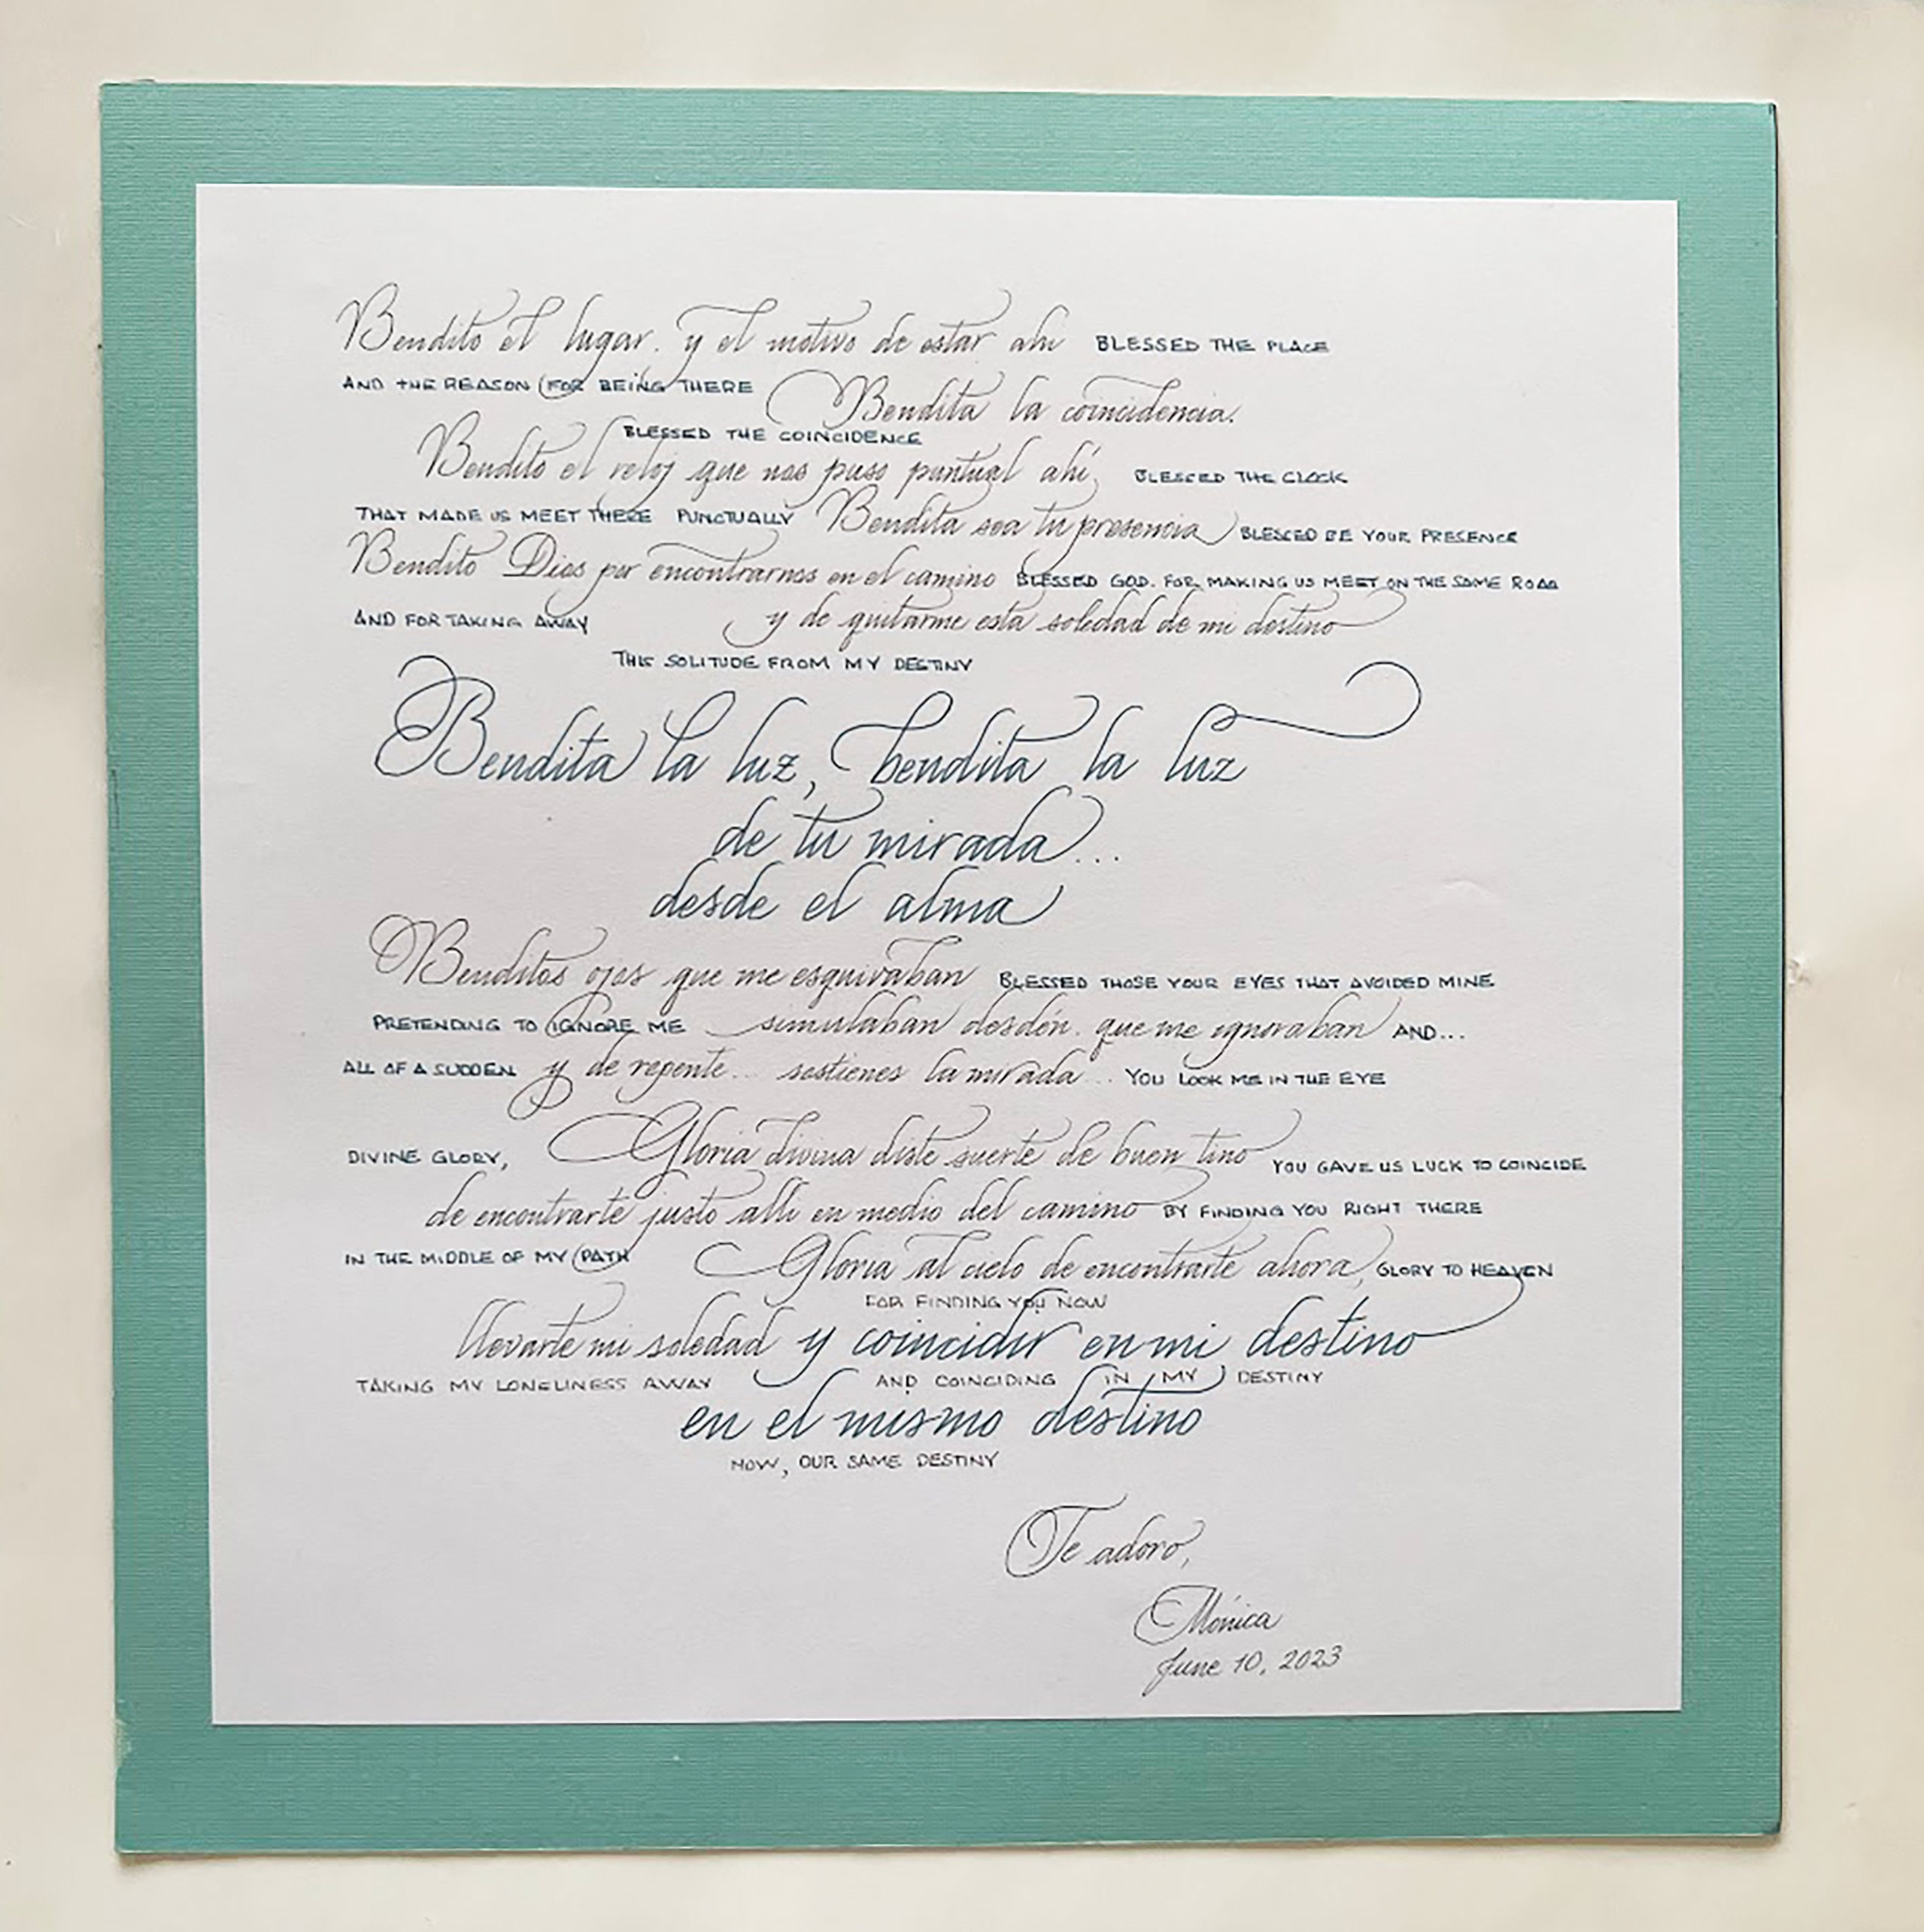 Bendito el lugar. y el motivo de estar ahi BLESSED THE PLACE
AND THE REASON FOR BEING THERE Bendita la coincidencia.
BLESSED THE COINCIDENCE
Bendito el reloj que nos puso puntual ahí, BLESSED THE CLOCK
THAT MADE US MEET THERE PUNCTUALLY Bendita sea tu presencia BLESSED BE YOUR PRESENCE
Bendito Dios por encontrarnos en el camino BLESSED GOD. FOR MAKING US MEET ON THE SAME ROAD
AND FOR TAKING AWAY y de quitarme esta soledad de mi destino
THIS SOLITUDE FROM MY DESTINY
Bendita la luz, bendita la luz
de tu mirada...
desde el alma
Benditos ojos que me esquivaban BLESSED THOSE YOUR EYES THAT AVOIDED MINE
PRETENDING TO IGNORE ME simulaban desdén. que me ignoraban AND...
ALL OF A SUDDEN y de repente... sostienes la mirada... YOU LOOK ME IN THE EYE
DIVINE GLORY, Gloria divina diste suerte de buen tino YOU GAVE US LUCK TO COINCIDE
de encontrarte justo alli en medio del camino BY FINDING YOU RIGHT THERE
IN THE MIDDLE OF MY PATH Gloria al cielo de encontrarte ahora, GLORY TO HEAVEN
FOR FINDING YOU NOW
llevarte mi soledad y coincidir en mi destino
TAKING MY LONELINESS AWAY AND COINCIDING IN MY DESTINY
en el mismo destino
NOW, OUR SAME DESTINY
Te adoro,
Mónica
June 10, 2023